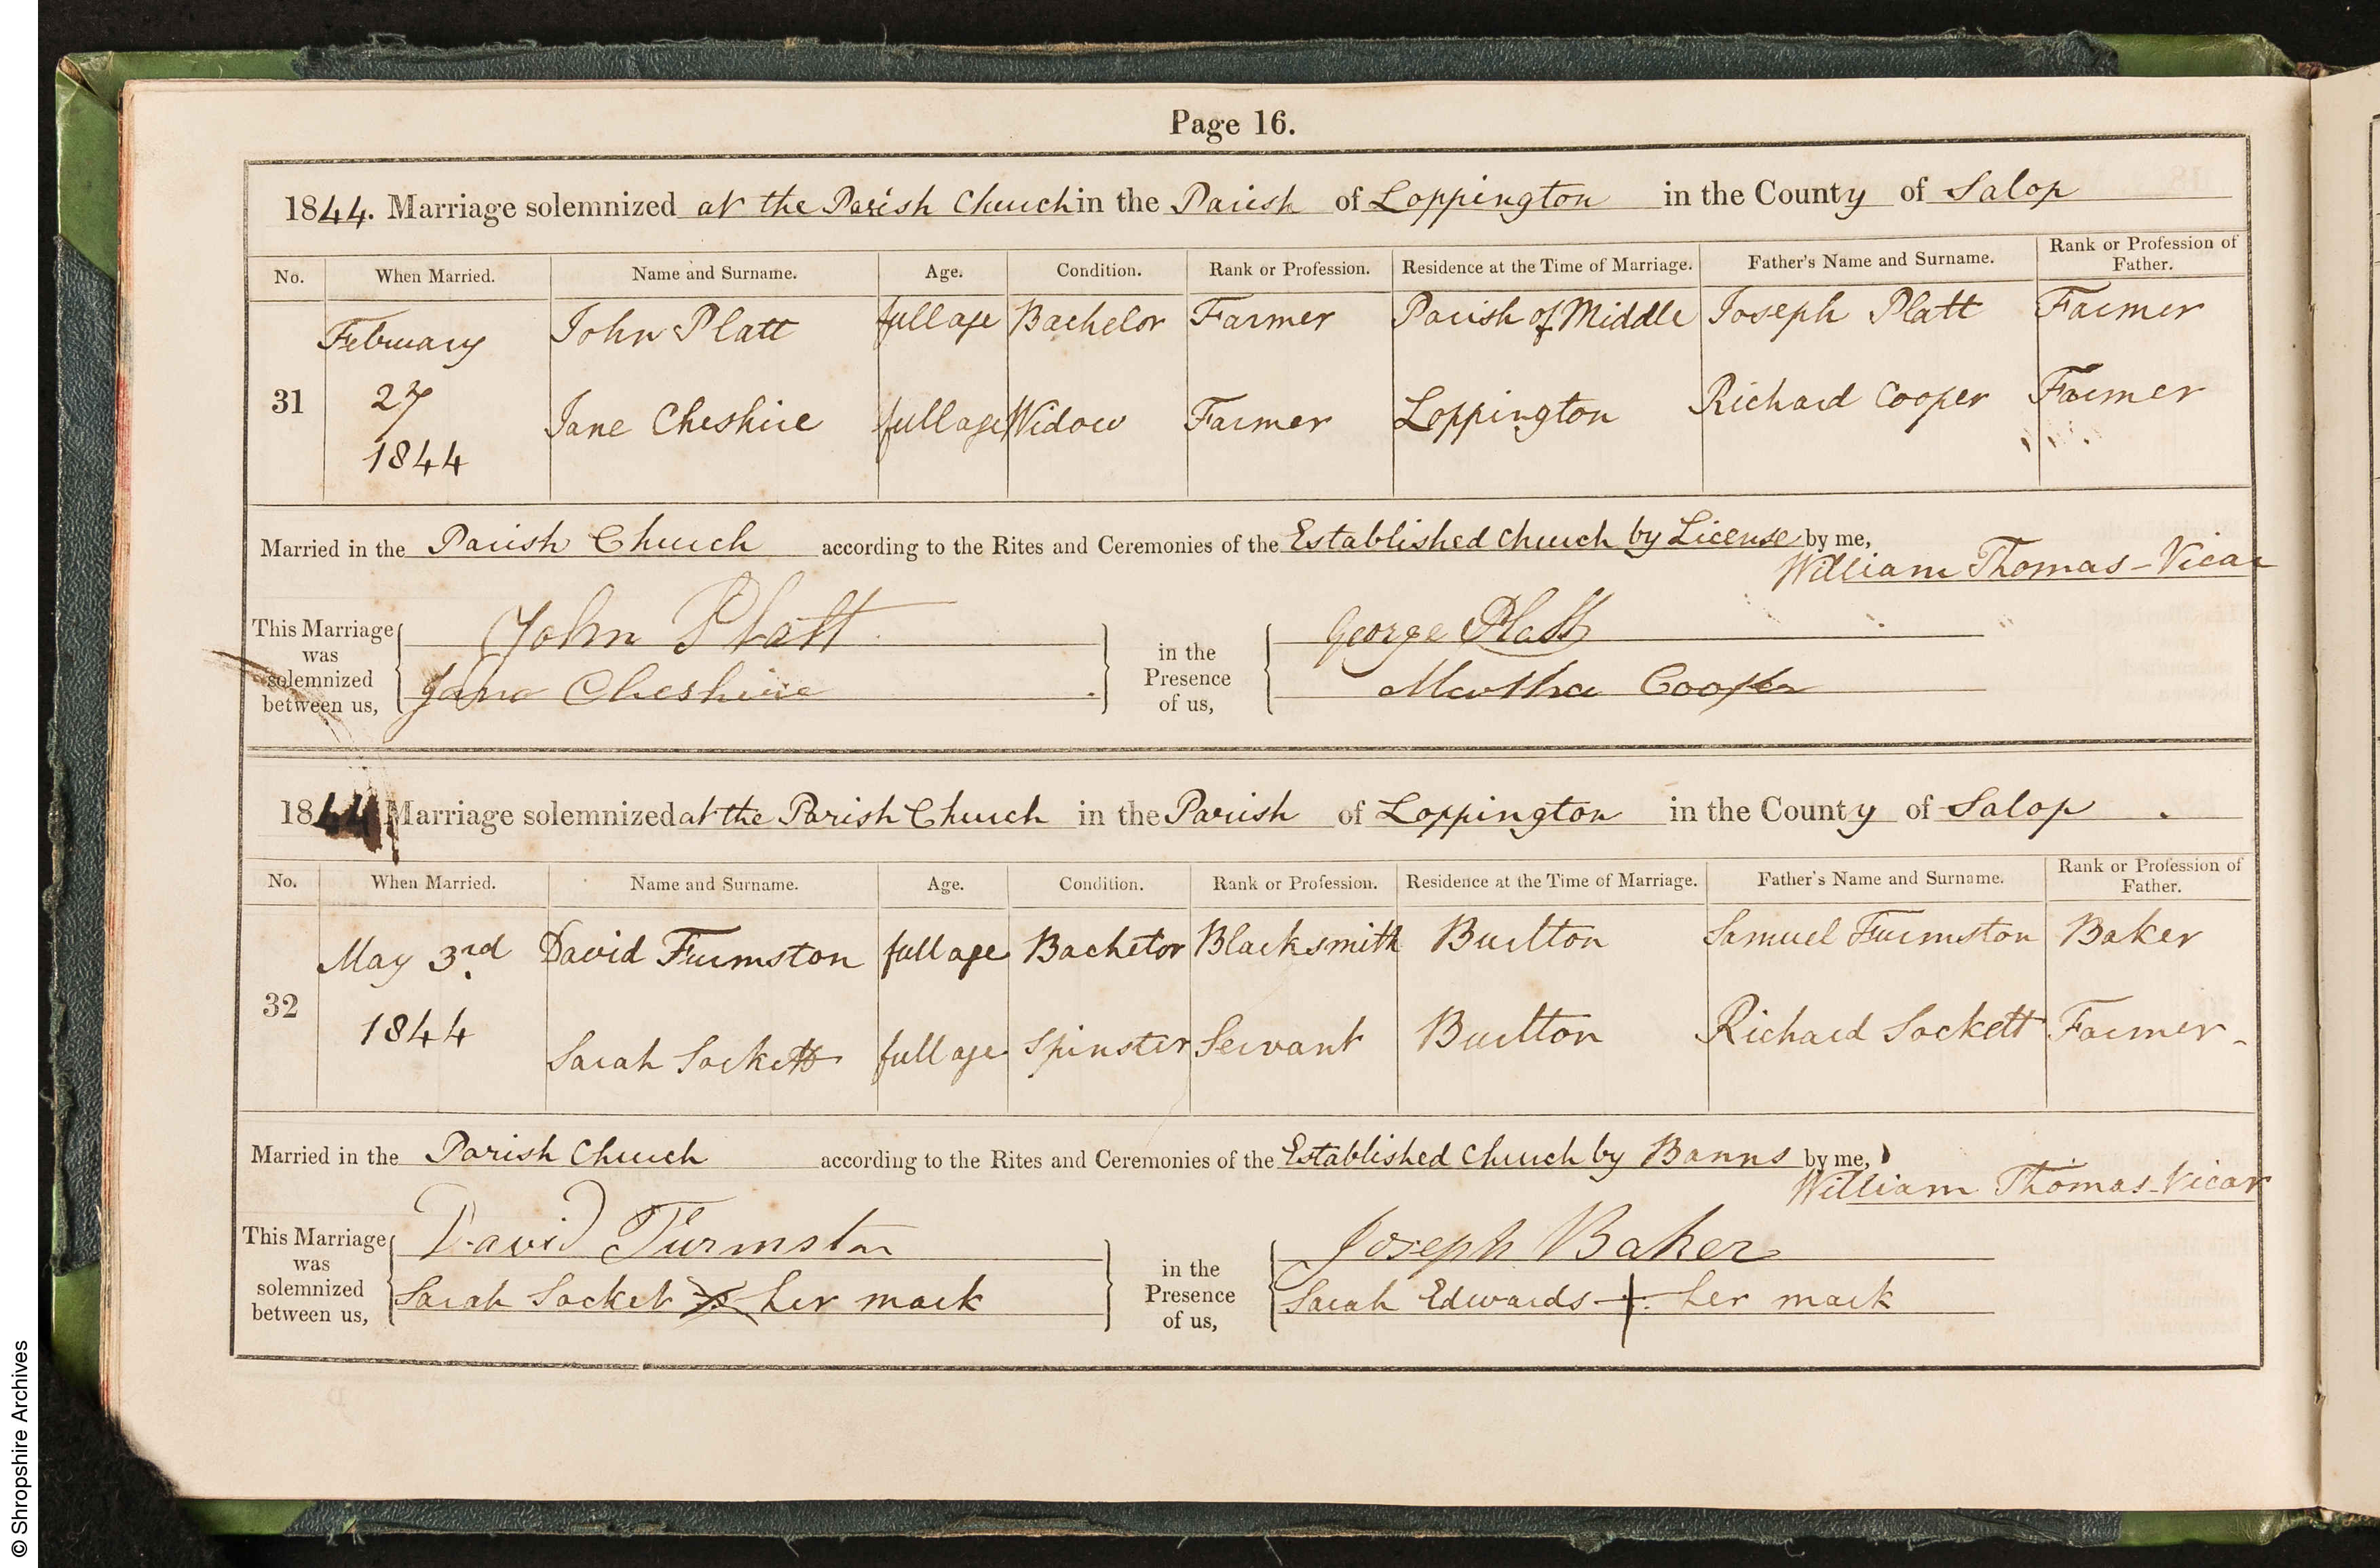 Page 16.
1844. Marriage solemnized at the Parish Church in the Parish of Loppington in the County of Salop
No. When Married. Name and Surname. Age. Condition. Rank or Profession. Residence at the Time of Marriage. Father's Name and Surname. Rank or Profession of Father.
February John Platt full age Bachelor Farmer Parish of Middle Joseph Platt Farmer
31 27 Jane Cheshire full age Widow Farmer Loppington Richard Cooper Farmer
1844
Married in the Parish Church according to the Rites and Ceremonies of the Established Church by License by me,
William Thomas - Vicar
This Marriage was solemnized between us, John Platt in the Presence of us, George Platt
Jane Cheshire Martha Cooper
1844 Marriage solemnized at the Parish Church in the Parish of Loppington in the County of Salop
No. When Married. Name and Surname. Age. Condition. Rank or Profession. Residence at the Time of Marriage. Father's Name and Surname. Rank or Profession of Father.
May 3rd David Furmston full age Bachelor Blacksmith Burlton Samuel Furmston Baker
32 1844 Sarah Sockett full age Spinster Servant Burlton Richard Sockett Farmer
Married in the Parish Church according to the Rites and Ceremonies of the Established Church by Banns by me,
William Thomas - Vicar
This Marriage was solemnized between us, David Furmston in the Presence of us, Joseph Baker
Sarah Socket X her mark Sarah Edwards + her mark
© Shropshire Archives